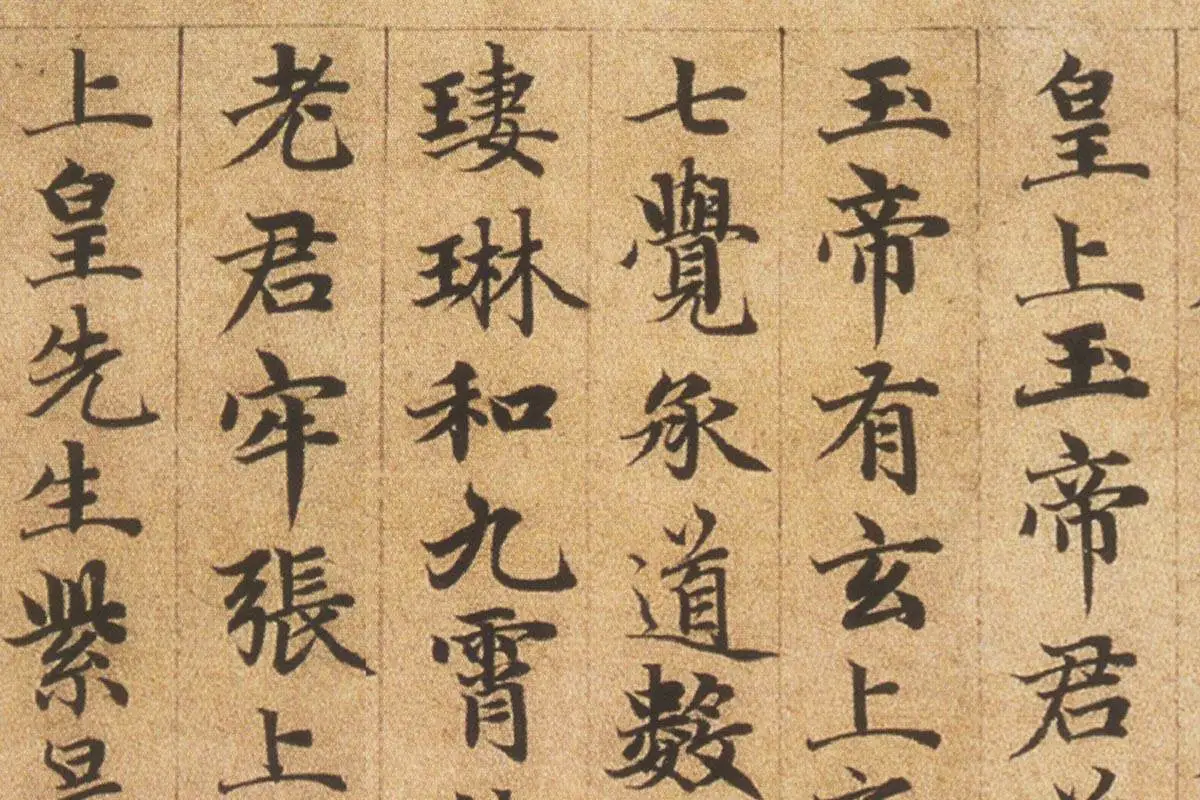 皇上玉帝君
玉帝有玄上
七覺承道數
琳和九霄
老君牢張上
上皇先生紫